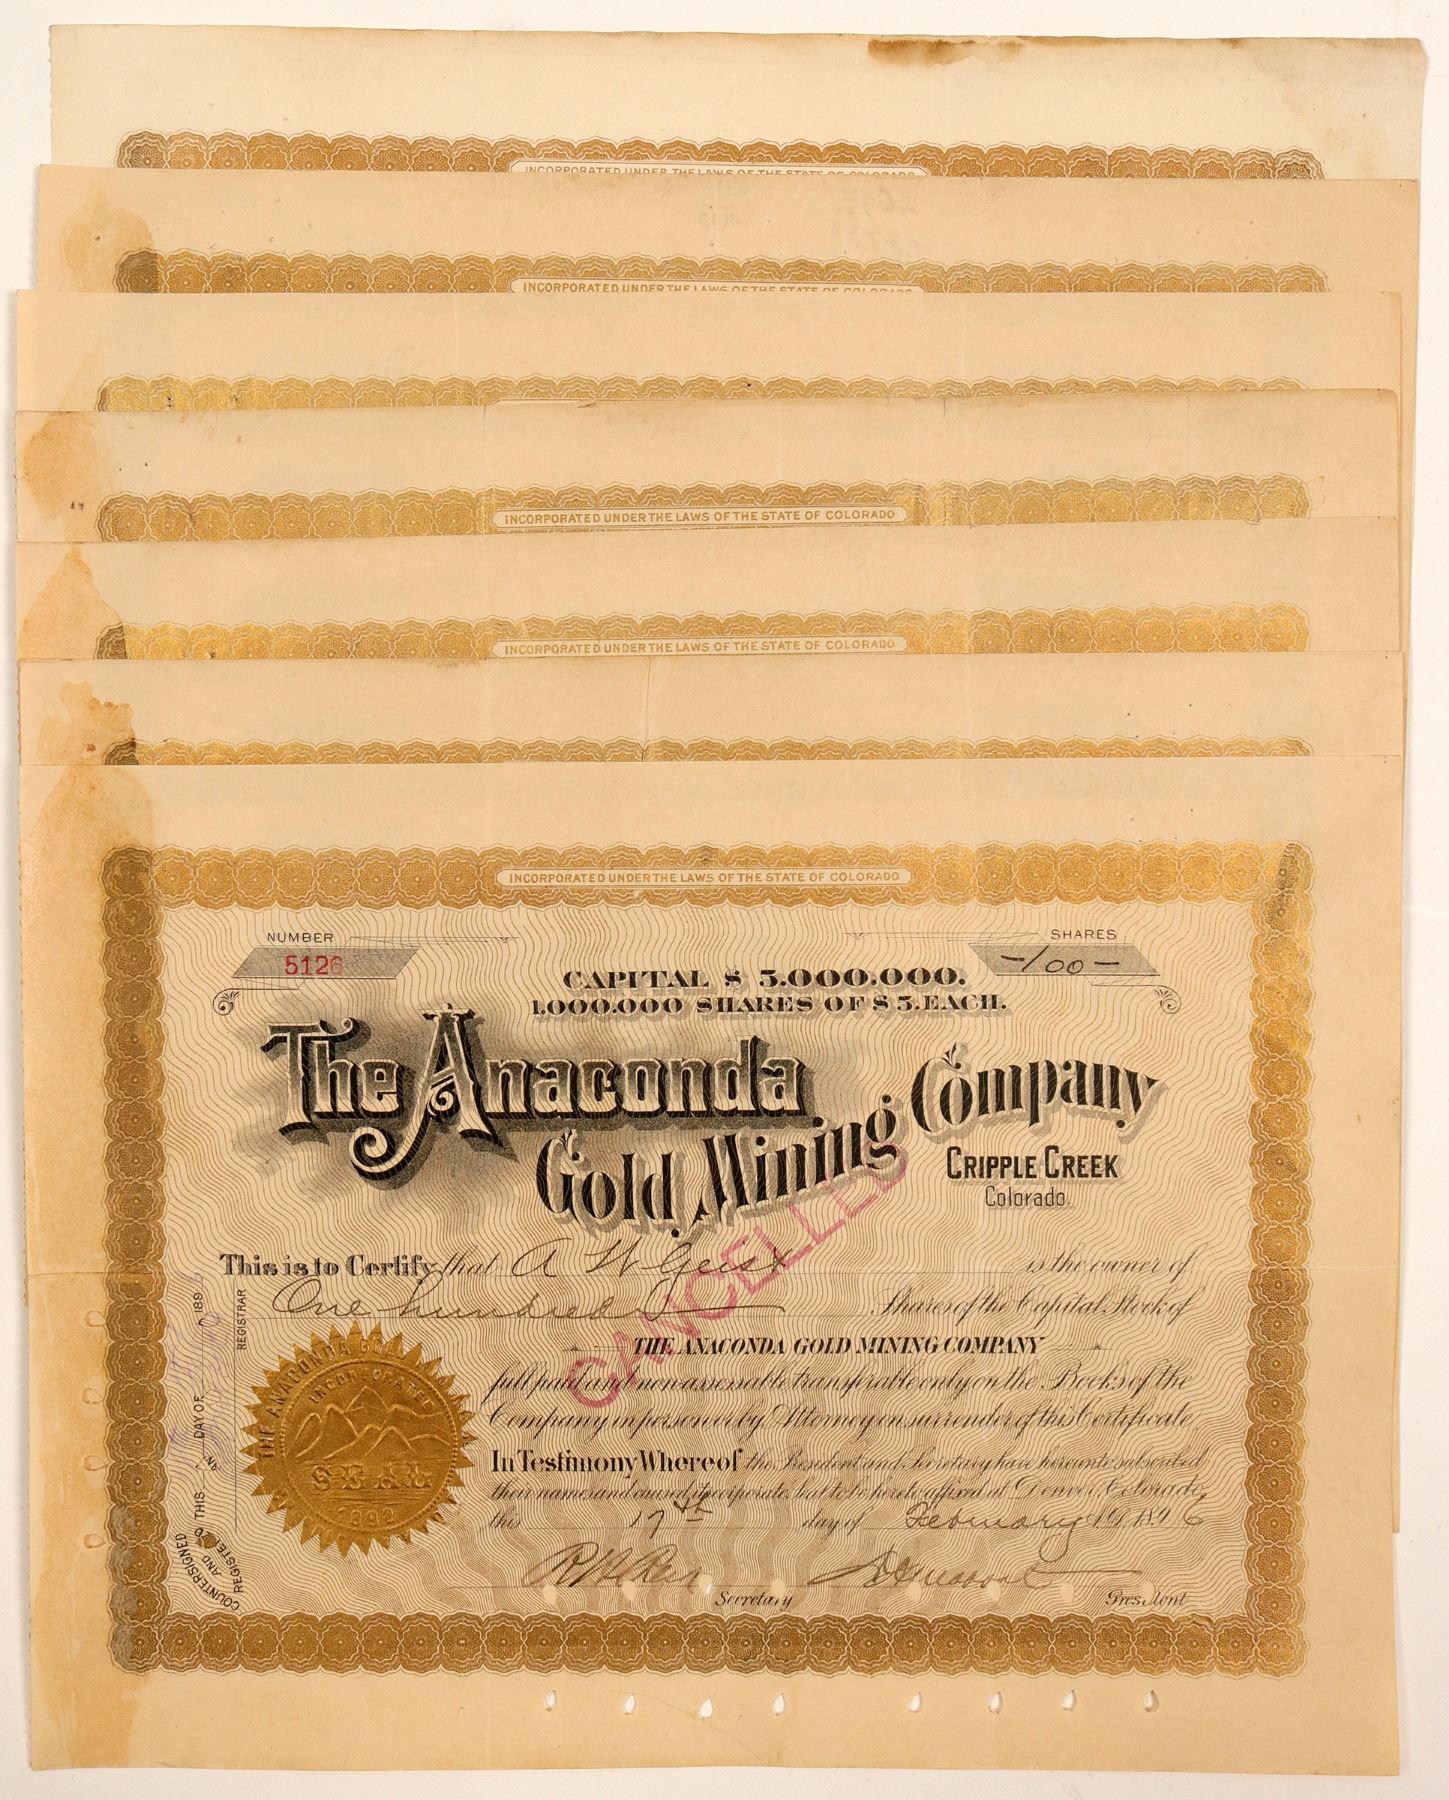 INCORPORATED UNDER THE LAWS OF THE STATE OF COLORADO
INCORPORATED UNDER THE LAWS OF THE STATE OF COLORADO
INCORPORATED UNDER THE LAWS OF THE STATE OF COLORADO
INCORPORATED UNDER THE LAWS OF THE STATE OF COLORADO
INCORPORATED UNDER THE LAWS OF THE STATE OF COLORADO
NUMBER
5126
SHARES
-100-
CAPITAL $ 5.000.000.
1.000.000 SHARES OF $5. EACH.
The Anaconda
Gold Mining Company
CRIPPLE CREEK
Colorado.
CANCELLED
This is to Certify that A W Geist is the owner of
One hundred Shares of the Capital Stock of
THE ANACONDA GOLD MINING COMPANY
full paid and non assessable transferable only on the Books of the
Company in person or by Attorney on surrender of this Certificate.
In Testimony Whereof the President and Secretary have hereunto subscribed
their names and caused its corporate Seal to be hereto affixed at Denver, Colorado,
this 17th day of February 1896
Secretary
President
COUNTERSIGNED
AND
REGISTERED
THIS DAY OF 189
REGISTRAR
THE ANACONDA GOLD
INCORPORATED
SEAL
1892